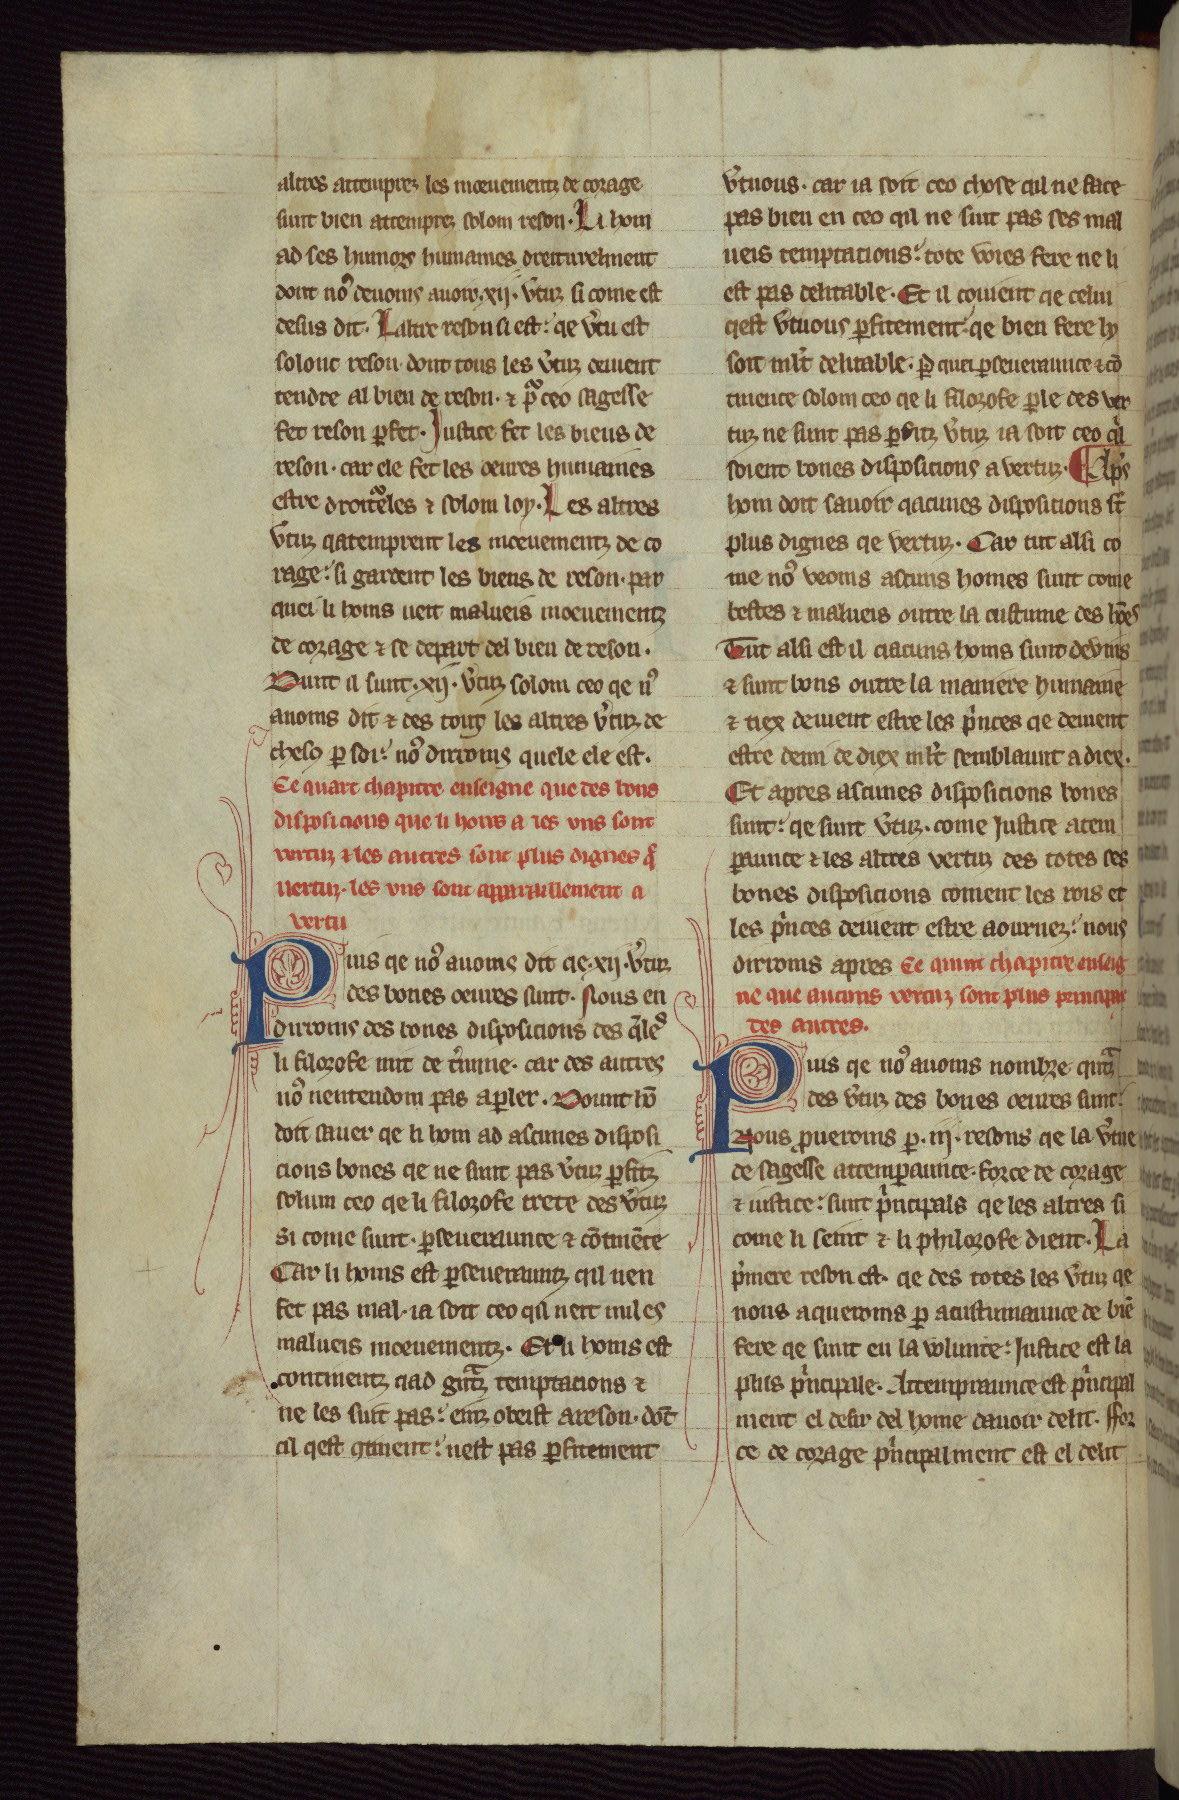 altres attemprez les moeuementz de corage
sunt bien attemprez solom reson. Li hom
ad ses humors humaines dreiturelment
dont no9 deuoms auoir .xij. v̾tuz si come est
desus dit. Laltre reson si est: qe v̾tu est
solonc reson dont tous les v̾tuz deiuent
tendre al bien de reson. ⁊ pͣ ceo sagesse
fet reson ꝑfet. Justice fet les biens de
reson. car ele fet les oeures humaines
estre droitͥeles ⁊ solom loy. Les altres
v̾tuz qatemprent les moeuementz de co
rage: si gardent les biens de reson. par
quei li homs ueit malueis moeuementz
de corage ⁊ se depart del bien de reson.
Dunt il sunt .xij. v̾tuz solom ceo qe n9
auoms dit ⁊ des touz les altres v̾tuz de
chescꝰ ꝑ soi: no9 dirroms quele ele est.
Ce quart chapitre enseigne que des bons
disposicions que li homs a les vns sont
vertuz ⁊ les autres sont plus dignes q̃
uertuz. les vns sont apparaillement a
vertu
Puis qe no9 auoms dit qe .xij. v̾tuz
des bones oeures sunt. Nous en
dirroms des bones disposicions des q̃les
li filozofe mit de t̾mine. car des autres
no9 nentendom pas a ꝑler. Dount hō
doit sauer qe li hom ad ascunes disposi
cions bones qe ne sunt pas v̾tuz ꝑfitz
solum ceo qe li filozofe trete des v̾tuz
Si come sunt. ꝑseueraunce ⁊ cōtinēce
Car li homs est ꝑseuerauntz qil nen
fet pas mal. ia soit ceo qil neit nules
malueis moeuementz. Et li homs est
continentz qad gͣntz temptacions ⁊
ne les suit pas: einz obeist a reson. dōt
cil qest ꝯtinent: nest pas ꝑfitement
v̾tuous. car ia soit ceo chose qil ne face
pas bien en ceo qil ne suit pas ses mal
ueis temptacions: tote voies fere ne li
est pas delitable. Et il couient qe celui
qest v̾tuous ꝑfitement: qe bien fere ly
soit mlt̾ delitable. Ꝑ quei ꝑseueraunce ⁊ cō
tinence solom ceo qe li filozofe ꝑle des ver
tuz ne sunt pas ꝑfitz v̾tuz ia soit ceo qͥl
soient bones disposicions a vertuz. Apͬs
hom doit sauoir qacunes disposicions st̄
plus dignes qe vertuz. Car tut alsi co
me no9 veoms ascuns homes sunt come
bestes ⁊ malueis outre la custume des hōes
Tut alsi est il qacuns homs sunt devins
⁊ sunt bons outre la maniere humaine
⁊ tiex deiuent estre les pͥnces qe deiuent
estre demi de diex mlt̾ semblaunt a diex.
Et apres ascunes disposicions bones
sunt: qe sunt v̾tuz. come Justice atem
ꝑaunce ⁊ les altres vertuz des totes ses
bones disposicions coment les rois et
les pͥnces deiuent estre aournez: nous
dirroms apres Ce quint chapitre enseig
ne que aucuns vertuz sont plus principaus
des autres.
Puis qe no9 auoms nombre quͣntz
des v̾tuz des bones oeures sunt:
Nous ꝓueroms ꝑ .iij. resons qe la v̾tue
de sagesse attemꝑaunce. force de corage
⁊ iustice: sunt pͥncipals qe les altres si
come li seint ⁊ li philozofe dient. La
pͥmere reson est. qe des totes les v̾tuz qe
nous aqueroms ꝑ acustumaunce de biē
fere qe sunt en la volunte: Justice est la
plus pͥncipale. Attempraunce est pͥncipal
ment el desir del home dauoir delit. ffor
ce de corage pͥncipalment est el delit